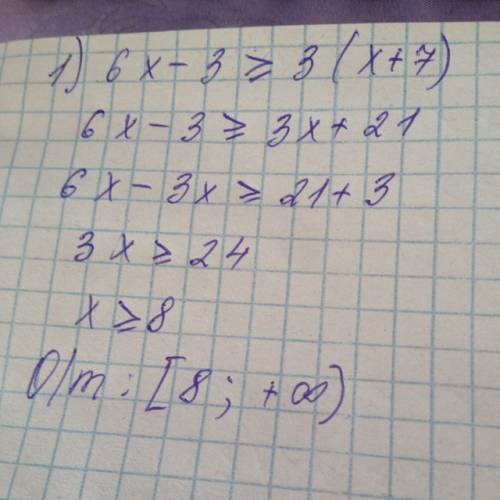 1) 6x - 3 ≥ 3(x+7)
6x - 3 ≥ 3x + 21
6x - 3x ≥ 21 + 3
3x ≥ 24
x ≥ 8
О/т: [8; +∞)